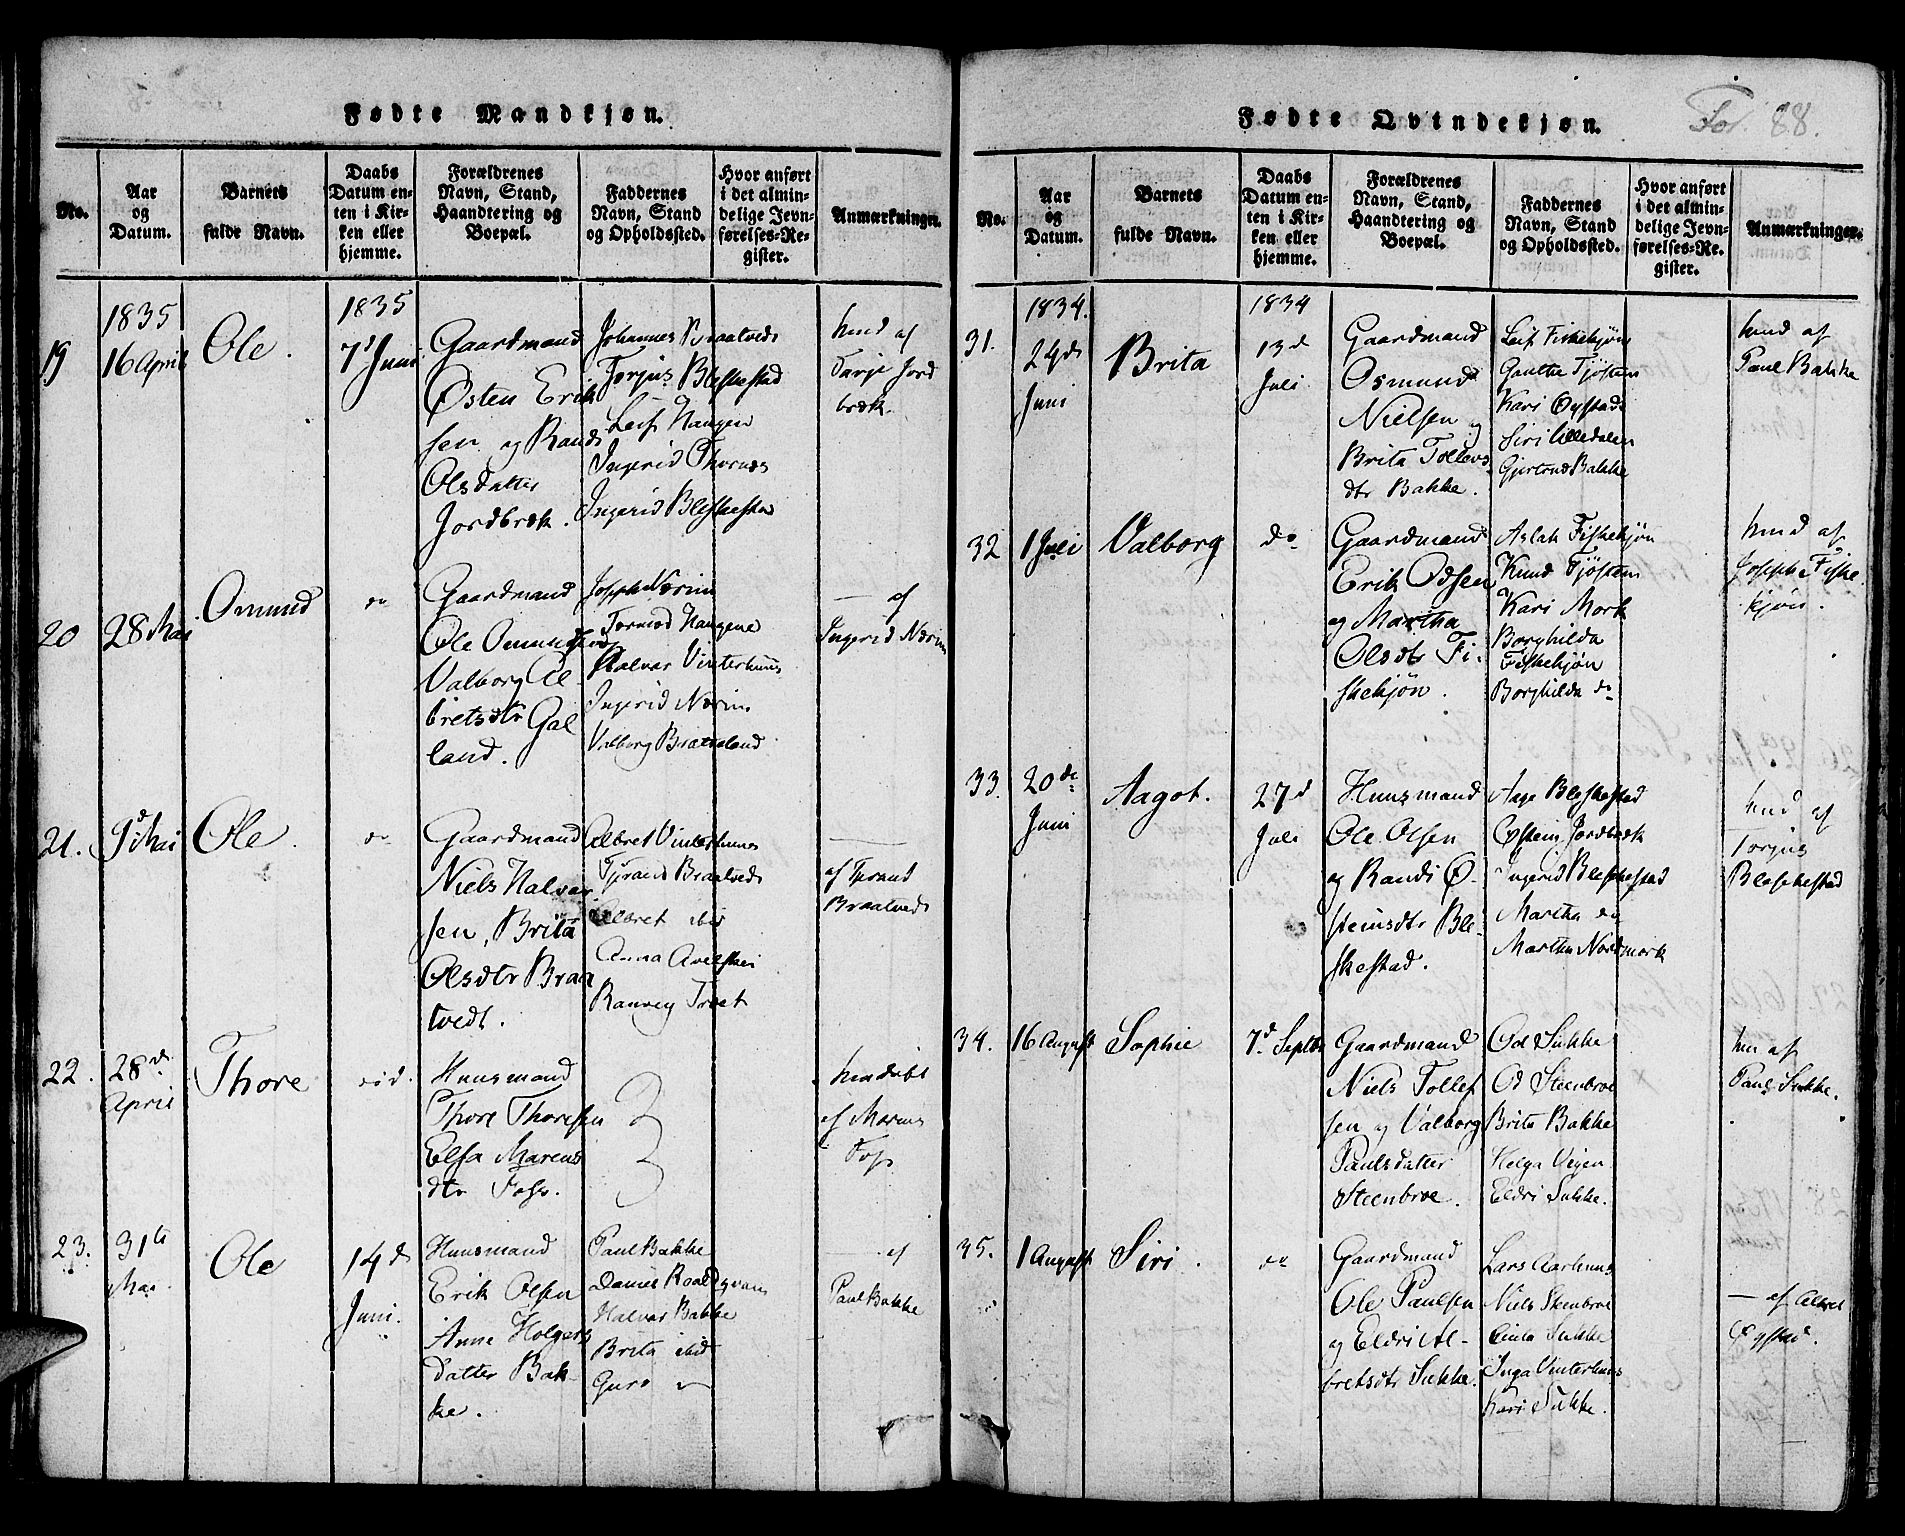 Fødte Mandkjøn.
No.
Aar
og
Datum.
Barnets
fulde Navn.
Daabs
Datum en-
ten i Kir-
ken eller
hjemme.
Forældrenes
Navn, Stand,
Haandtering og
Boepæl.
Faddernes
Navn, Stand
og Opholdssted.
Hvor anført
i det almin-
delige Jevn-
førelses-Re-
gister.
Anmærkninger.
19
1835
16 April
Ole.
1835
7d Juni
Gaardmand
Østen Erik
sen og Rand
Olsdatter
Jordbræk.
Johannes Braatveds
Torjus Bleskestad
Leif Haugen
Ingerid Thornæs
Ingerid Bleskestad
hmd af
Tarje Jord
bræk.
20
28 Mai
Omund
do
Gaardmand
Ole Omundsen
Valborg Al-
bretsdtr Gal
land.
Joseph Nærim
Tormod Haugene
Halvar Vinterhuus
Ingerid Nærim
Valborg Bratteland
— af
Ingerid Nærim
21.
9d Mai
Ole
do
Gaardmand
Niels Halvar
sen, Brita
Olsdtr Braa
tvedt.
Albret Vinterhuus
Tjerand Braatveds
Albret ibid
Anna
Ranvey Troet
—
af Thrand
Braatveds
22.
28de
April
Thore
Huusmand
Thore Thoresen
Elsa Marens
dtr Foss.
hmdøbt
af Marens
Foss
23.
31te
Mai
Ole
14d
Juni.
Huusmand
Erik Olsen
Anne Holgers
datter Bak-
ke.
Paul Bakke
Daniel Roaldqvam
Halvar Bakke
Brita ibid
Guro
— af
Paul Bakke
Fødte Qvindekjøn.
Fol. 88.
No.
Aar
og
Datum.
Barnets
fulde Navn.
Daabs
Datum en-
ten i Kir-
ken eller
hjemme.
Forældrenes
Navn, Stand,
Haandtering og
Boepæl.
Faddernes
Navn, Stand
og Opholdssted.
Hvor anført
i det almin-
delige Jevn-
førelses-Re-
gister.
Anmærkninger.
31.
1834.
24de
Juni
Brita
1834
13d
Juli
Gaardmand
Osmund
Nielsen og
Brita Tollevs
dtr Bakke.
Leif Fiskekjøn
Gauthe Tjøsten
Kari Øystad
Siri Lilledalen
Gjertrud Bakke
hmd af
Paul Bakke
32
1 Juli
Valborg
do
Gaardmand
Erik Odsen
og Martha
Olsdtr Fi-
skekjøn.
Aslak Fiskekjøn
Knud Tjøsten
Kari Mork
Borghilda
Fiskekjøn
Borghilda do
hmd af
Joseph Fiske
kjøn.
33.
20de
Juni
Aagot.
27d
Juli
Huusmand
Ole Olsen
og Randi Ø-
steinsdtr Ble-
skestad.
Aage Bleskestad
Eystein Jordbræk
Ingerid Bleskestad
Martha do
Martha Nordmork
hmd af
Torjus
Bleskestad
34.
16 August
Sophie
7d Septbr
Gaardmand
Niels Tollef
sen og Valborg
Paulsdatter
Steenbroe.
Od Sukke
Od Steenbroe
Brita Bakke
Helga Vegen
Eldri Sukke.
hm af
Paul Sukke.
35.
1 August
Siri.
do
Gaardmand
Ole Paulsen
og Eldri Al-
bretsdtr Sukke.
Lars Aarhuus
Niels Steenbroe
Sukke
Inga Vinterhuus
Kari Sukke.
— af Albret
Øystad.